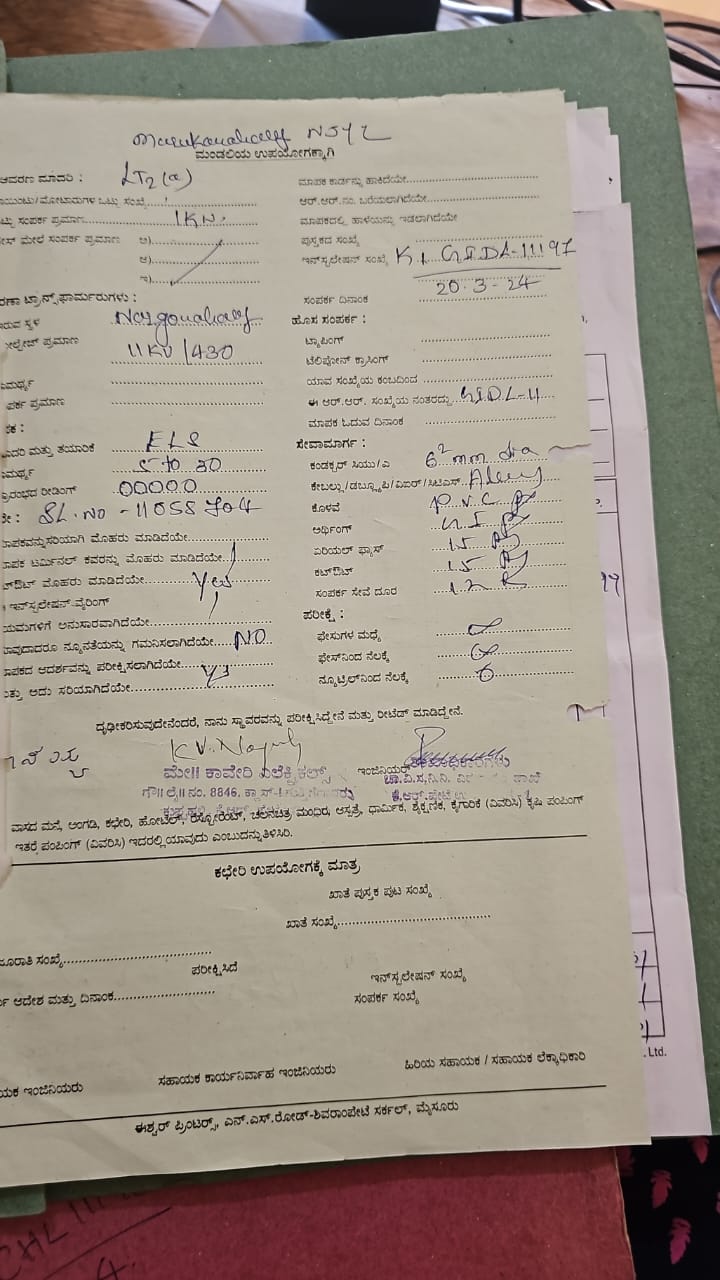 NJYZ
ಮಂಡಲಿಯ ಉಪಯೋಗಕ್ಕಾಗಿ
ಆವರಣ ಮಾದರಿ : LT2(a)
ಮಾಪಕ ಕಾರ್ಡನ್ನು ಹಾಕಿದೆಯೇ
ಾಯಿಂಟು/ಮೋಟಾರುಗಳ ಒಟ್ಟು ಸಂಖ್ಯೆ
ಆರ್.ಆರ್.ನಂ. ಬರೆಯಲಾಗಿದೆಯೇ
ಟ್ಟು ಸಂಪರ್ಕ ಪ್ರಮಾಣ 1KN.
ಮಾಪಕದಲ್ಲಿ ಹಾಳೆಯನ್ನು ಇಡಲಾಗಿದೆಯೇ
ೇಸ್ ಮೇಲೆ ಸಂಪರ್ಕ ಪ್ರಮಾಣ ಅ)
ಪುಸ್ತಕದ ಸಂಖ್ಯೆ
ಆ)
ಇನ್‌ಸ್ಟಲೇಷನ್ ಸಂಖ್ಯೆ
ಇ)
20-3-24
ರಣಾ ಟ್ರಾನ್ಸ್‌ಫಾರ್ಮರುಗಳು :
ಸಂಪರ್ಕ ದಿನಾಂಕ
ರುವ ಸ್ಥಳ
ಹೊಸ ಸಂಪರ್ಕ :
ೋಲ್ಟೇಜ್ ಪ್ರಮಾಣ 11KV/430
ಟ್ಯಾಪಿಂಗ್
ಟೆಲಿಫೋನ್ ಕ್ರಾಸಿಂಗ್
ಮರ್ಥ್ಯ
ಯಾವ ಸಂಖ್ಯೆಯ ಕಂಬದಿಂದ
ಪರ್ಕ ಪ್ರಮಾಣ
ಈ ಆರ್.ಆರ್. ಸಂಖ್ಯೆಯ ನಂತರದ್ದು
ಕ :
ಮಾಪಕ ಓದುವ ದಿನಾಂಕ
ಾದರಿ ಮತ್ತು ತಯಾರಿಕೆ ELS
ಸೇವಾಮಾರ್ಗ :
ಮರ್ಥ್ಯ 5 to 30
ಕಂಡಕ್ಟರ್ ಸಿಯು/ಎ 6² mm dia
್ರಾರಂಭದ ರೀಡಿಂಗ್ 00000
ಕೇಬಲ್ಲು/ಡಬ್ಲ್ಯೂಪಿ/ವಿಐಆರ್/ಸಿಟಿಎಸ್
SL.NO -11055704
ಕೊಳವೆ P.V.C
ಾಪಕವನ್ನು ಸರಿಯಾಗಿ ಮೊಹರು ಮಾಡಿದೆಯೇ
ಅರ್ಥಿಂಗ್ G.I
ಾಪಕ ಟರ್ಮಿನಲ್ ಕವರನ್ನು ಮೊಹರು ಮಾಡಿದೆಯೇ
ಏರಿಯಲ್ ಫ್ಯೂಸ್ 15
ಟ್‌ಔಟ್ ಮೊಹರು ಮಾಡಿದೆಯೇ Yes
ಕಟ್‌ಔಟ್ 15
ಇನ್‌ಸ್ಟಲೇಷನ್-ವೈರಿಂಗ್
ಸಂಪರ್ಕ ಸೇವೆ ದೂರ
ಯಮಗಳಿಗೆ ಅನುಸಾರವಾಗಿದೆಯೇ
ಪರೀಕ್ಷೆ :
ಾವುದಾದರೂ ನ್ಯೂನತೆಯನ್ನು ಗಮನಿಸಲಾಗಿದೆಯೇ NO
ಫೇಸುಗಳ ಮಧ್ಯೆ ∞
ಾಪಕದ ಆದರ್ಶವನ್ನು ಪರೀಕ್ಷಿಸಲಾಗಿದೆಯೇ
ಫೇಸ್‌ನಿಂದ ನೆಲಕ್ಕೆ ∞
ತ್ತು ಅದು ಸರಿಯಾಗಿದೆಯೇ
ನ್ಯೂಟ್ರಲ್‌ನಿಂದ ನೆಲಕ್ಕೆ
ದೃಢೀಕರಿಸುವುದೇನೆಂದರೆ, ನಾನು ಸ್ಥಾವರವನ್ನು ಪರೀಕ್ಷಿಸಿದ್ದೇನೆ ಮತ್ತು ರೀಟೆಡ್ ಮಾಡಿದ್ದೇನೆ.
ಇಂಜಿನಿಯರ್
ಮೇ॥ ಕಾವೇರಿ ಎಲೆಕ್ಟ್ರಿಕಲ್ಸ್
ಗೌ॥ ಲೈ॥ ನಂ. 8846. ಕ್ಲಾಸ್-1
ವಾಸದ ಮನೆ, ಅಂಗಡಿ, ಕಛೇರಿ, ಹೋಟೆಲ್, ರೆಸ್ಟೋರೆಂಟ್, ಚಲನಚಿತ್ರ ಮಂಧಿರ, ಆಸ್ಪತ್ರೆ, ಧಾರ್ಮಿಕ, ಶೈಕ್ಷಣಿಕ, ಕೈಗಾರಿಕೆ (ವಿವರಿಸಿ) ಕೃಷಿ ಪಂಪಿಂಗ್
ಇತರೆ ಪಂಪಿಂಗ್ (ವಿವರಿಸಿ) ಇದರಲ್ಲಿ ಯಾವುದು ಎಂಬುದನ್ನು ತಿಳಿಸಿರಿ.
ಕಛೇರಿ ಉಪಯೋಗಕ್ಕೆ ಮಾತ್ರ
ಖಾತೆ ಪುಸ್ತಕ ಪುಟ ಸಂಖ್ಯೆ
ಖಾತೆ ಸಂಖ್ಯೆ
ಜೂರಾತಿ ಸಂಖ್ಯೆ
ಪರೀಕ್ಷಿಸಿದೆ
ಇನ್‌ಸ್ಟಲೇಷನ್ ಸಂಖ್ಯೆ
ಆದೇಶ ಮತ್ತು ದಿನಾಂಕ
ಸಂಪರ್ಕ ಸಂಖ್ಯೆ
ಯಕ ಇಂಜಿನಿಯರು
ಸಹಾಯಕ ಕಾರ್ಯನಿರ್ವಾಹ ಇಂಜಿನಿಯರು
ಹಿರಿಯ ಸಹಾಯಕ / ಸಹಾಯಕ ಲೆಕ್ಕಾಧಿಕಾರಿ
ಈಶ್ವರ್ ಪ್ರಿಂಟರ್ಸ್, ಎನ್.ಎಸ್.ರೋಡ್-ಶಿವರಾಂಪೇಟೆ ಸರ್ಕಲ್, ಮೈಸೂರು
. Ltd.